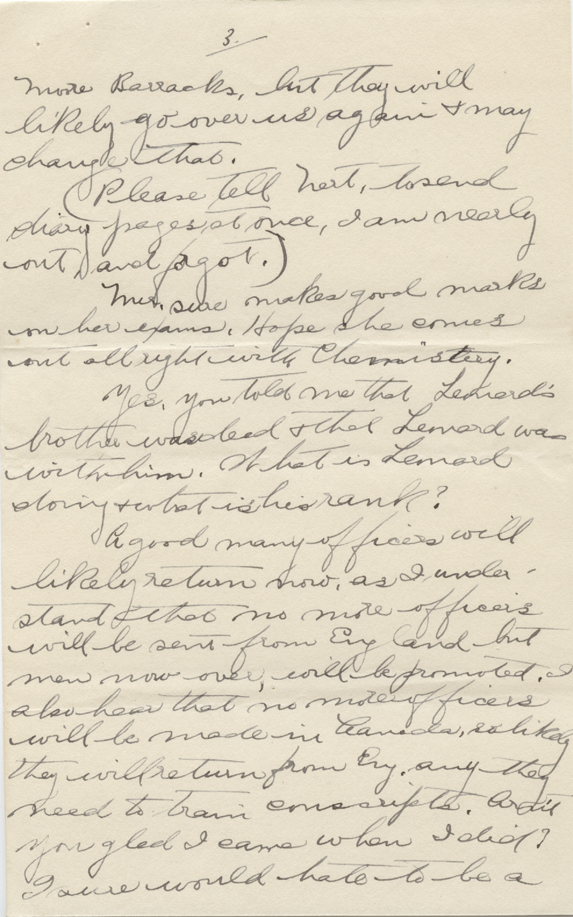 3.
more Barracks, but they will
likely go over us again & may
change that.
(Please tell Nert, to send
diary pages, at once, I am nearly
out, and forgot.)
sure makes good marks
on her exams. Hope she comes
out all right with Chemistery.
Yes, you told me that Lenard's
brother was dead & that Lenard was
with him. What is Lenard
doing & what is his rank?
A good many officers will
likely return now, as I under-
stand that no more officers
will be sent from England but
men now over, will be promoted. I
also hear that no more officers
will be made in Canada, so likely
they will return from Eng. any they
need to train conscripts. Arn't
you glad I came when I did?
I sure would hate to be a